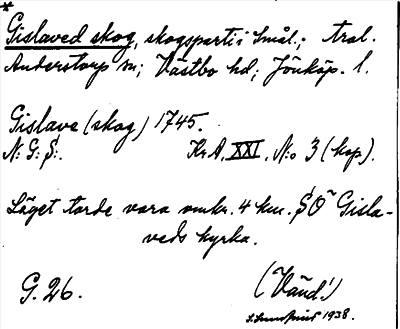 *
Gislaved skog, skogsparti i Smål.; trol.
Anderstorp sn; Västbo hd; Jönköp. l.
Gislave (skog) 1745.
N: G: S:. Kr A. XXI. N:o 3 (kop).
Läget torde vara omkr. 4 km. SO Gisla-
veds kyrka.
G. 26. (Vänd!)
1938.